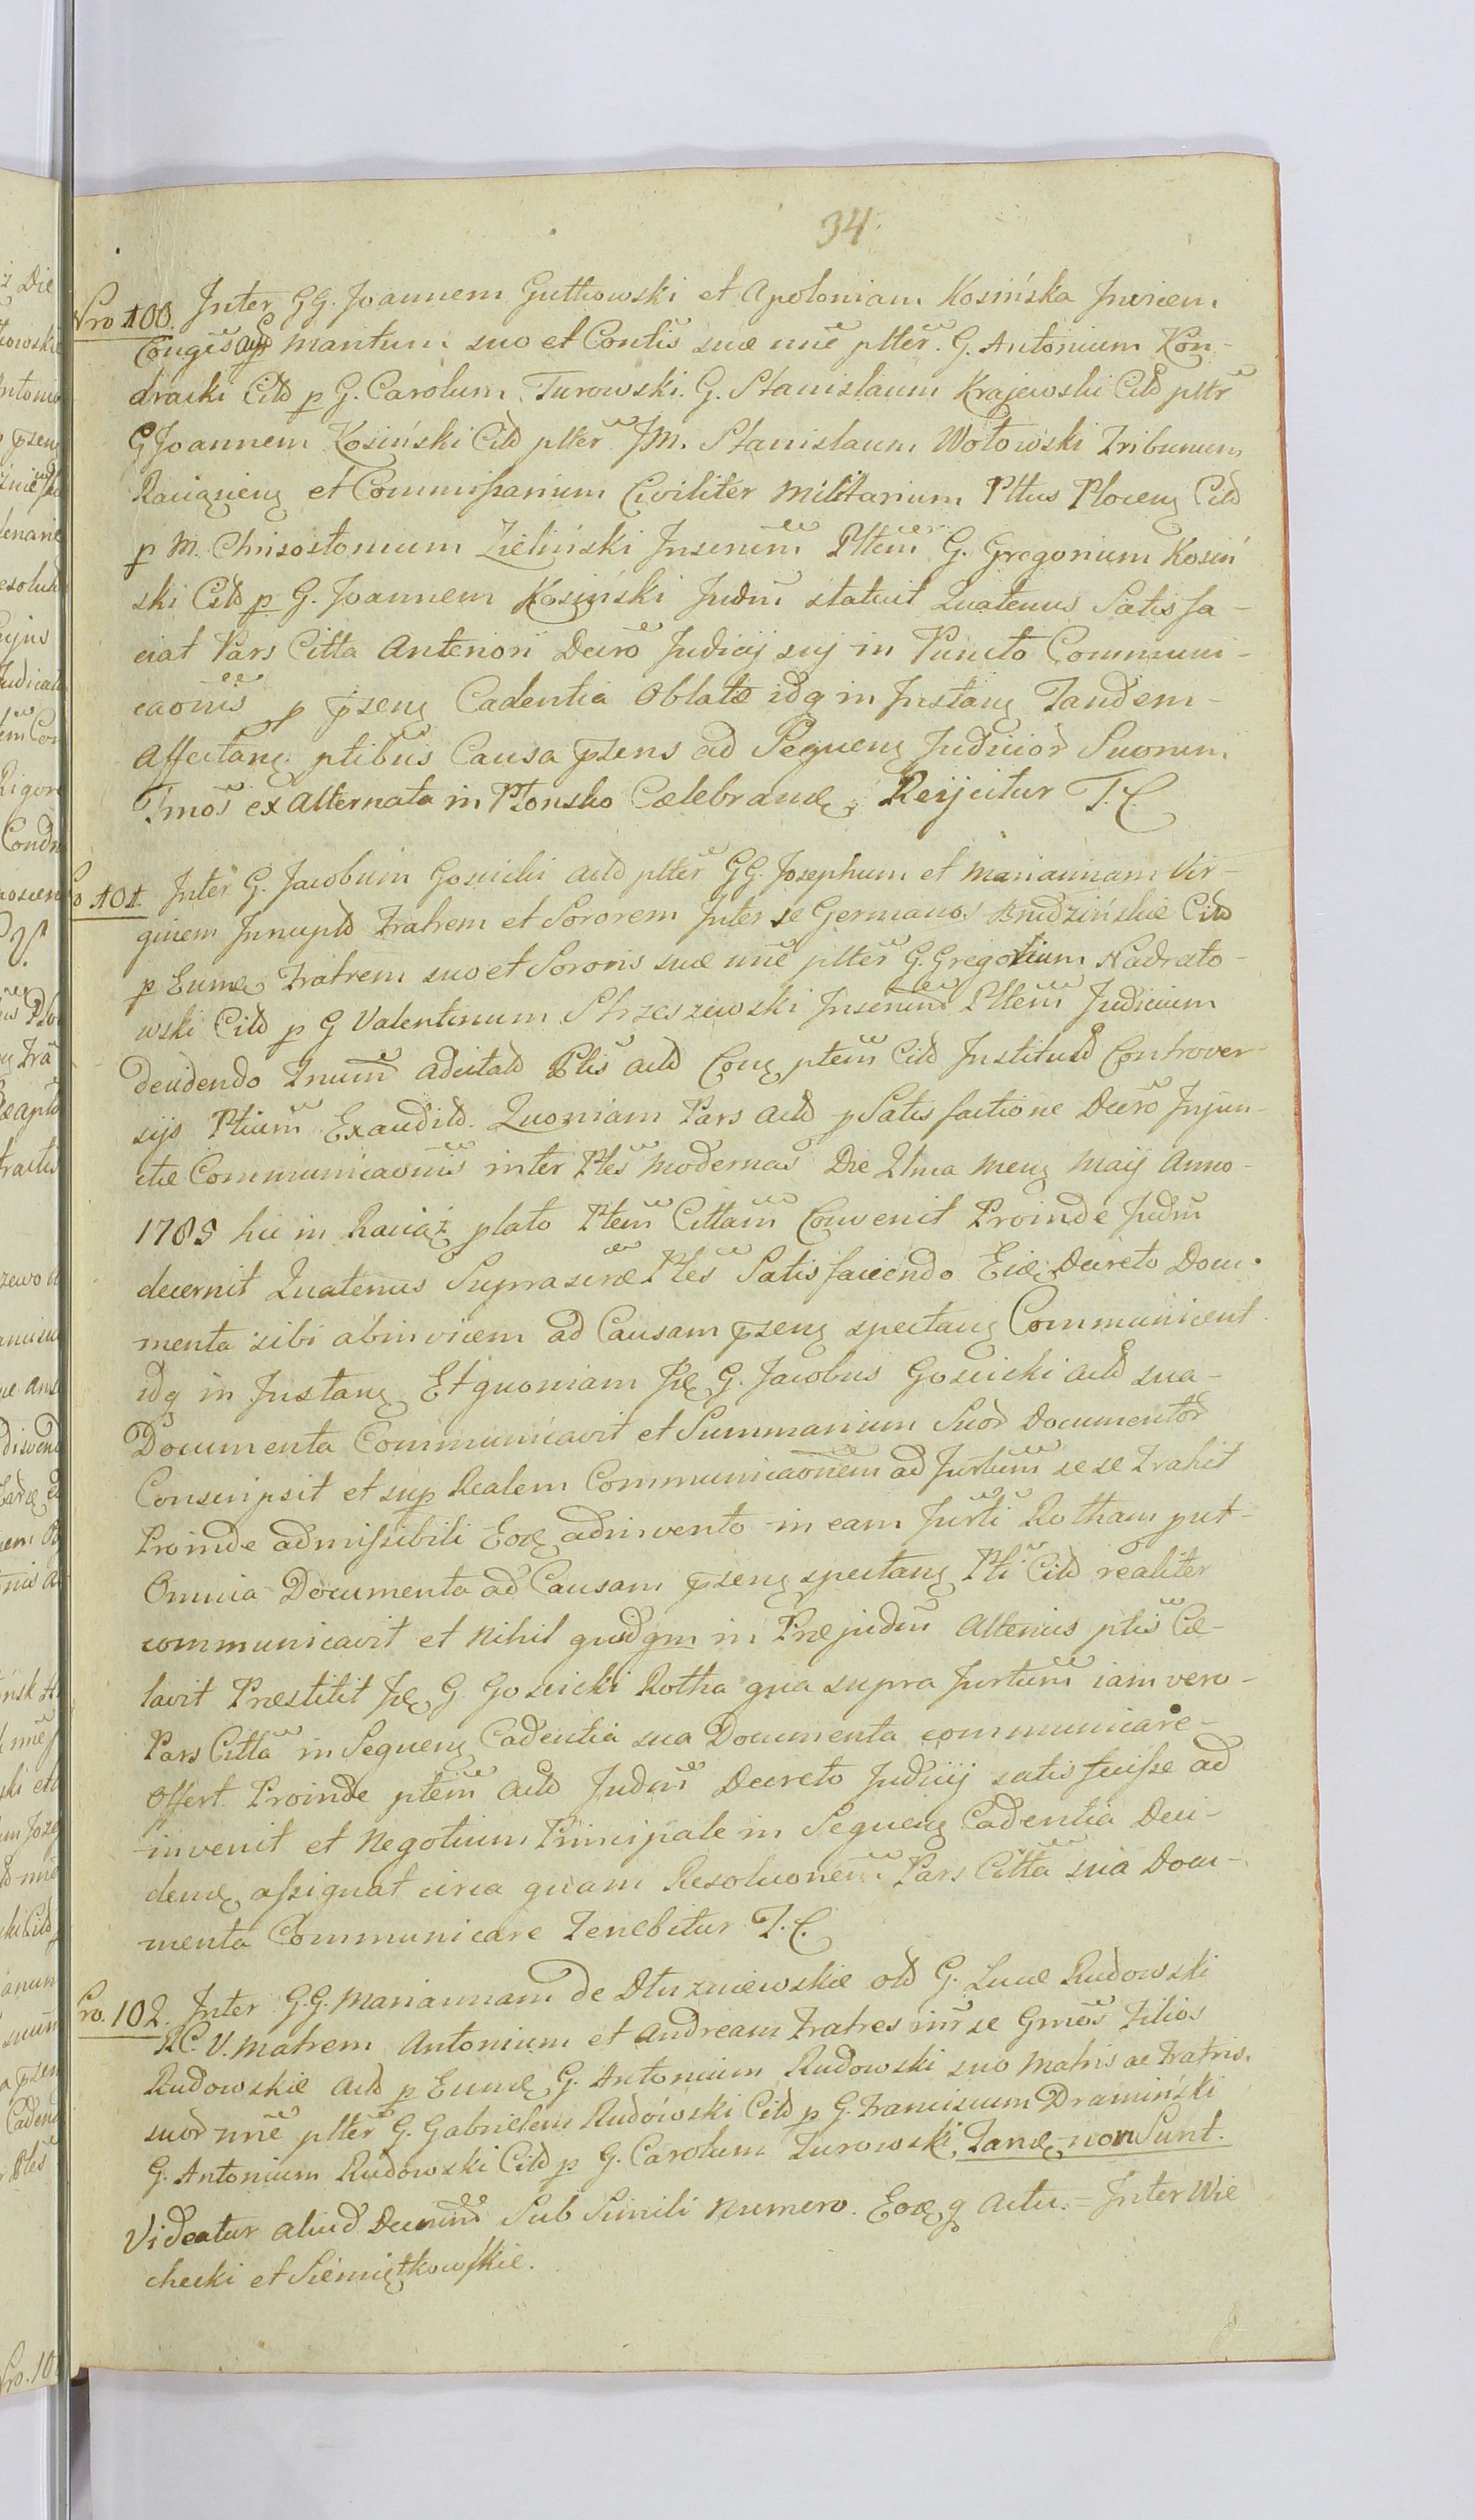 34.
Nro 100. Inter GG. Joannem Gutkowski et Apoloniam Kosińska Invicem
Conges Act p Maritum suo et Contis suæ nne ptter. G. Antonium Kon-
dracki Citd p G. Carolum Turowski. G. Stanislaum Krajewski Citd pttr
G Joannem Kosiński Citd ptter JM. Stanislaum Wołowski Tribunum
Raciązien et Commissarium Civiliter Militarium Pttus Plocen Citd
p M. Chrisostomum Zieliński Inserenm Pttem G. Gregorium Kosiń
ski Citd p G. Joannem Kosiński Judm statuit Quatenus Satisfa-
ciat Pars Citta Anteriori Decro Judicij sui in Puncto Communi-
caonis p pzen Cadentia Oblatæ idq in Instan Tandem-
Affectan ptibus Causa pzens ad Sequen Judicior Suorum
Tmos ex Alternata in Płonsko Cælebrand Reijcitur T. C.
Pro 101. Inter G. Jacobum Gosicki Actd ptter GG. Josephum et Mariannam Vir-
ginem Innuptd Fratrem et Sororem Inter se Germanos Brudzińskie Citd
p Eumd Fratrem suo et Sororis suæ nne ptter G. Gregorium Nadrato-
wski Citd p G Valentinum Strzeszewski Inserenm Pttem Judicium
decidendo Tnum adcitatd Ptis actd Con ptem Citd Institutd Controver-
sijs Ptium Exauditd. Quoniam Pars actd p Satisfactione Decro Injun-
ctæ Communicaonis inter Ptes Modernas Die 2tma Mens Maij Anno-
1785 hic in Raciąż plato Ptem Cittam Convenit Proinde Judm
decernit Quatenus Suprascræ Ptes Satisfaciendo Eid Decreto Docu-
menta sibi abinvicem ad Causam pzen spectan Communicent
idq in Instan Et quoniam Id G. Jacobus Gosicki actd sua-
Documenta Communicavit et Summarium Suor Documentor
Conscripsit et sup Realem Communicaonem ad Jurtum se se Trahit
Proinde admissibili Eod adinvento in eam Jurti Rotham put-
Omnia Documenta ad Causam pzen spectan Pti Citd realiter
communicavit et Nihil quidqm in Præjudm Alterius ptis Cæ-
lavit Præstitit Id G. Gosicki Rotha qua supra Jurtum iam vero-
Pars Citta in Sequen Cadentia sua Documenta communicare-
offert Proinde ptem actd Judm Decreto Judicij satis fecisse ad
invenit et Negotium Principale in Sequen Cadentia Deci-
dend assignat circa quam Resoluonem Pars Citta sua Docu-
menta Communicare Tenebitur T. C.
Pro. 102. Inter G.G. Mariannam de Dłuzniewskie old G. Lucæ Rudowski
R.C. V. Matrem Antonium et Andream Fratres inr se Gmos Filios
Rudowskie actd p Eumd G. Antonium Rudowski suo Matris ac Fratris
suor nne ptter G. Gabrielem Rudowski Citd p G. Franciscum Dramiński
G. Antonium Rudowski Citd p G. Carolum Turowski Tand non Sunt.
Videatur aliud Decrum Sub Simili Numero. Eod q actu. = Inter Wie
checki et Siemiątkowskie.